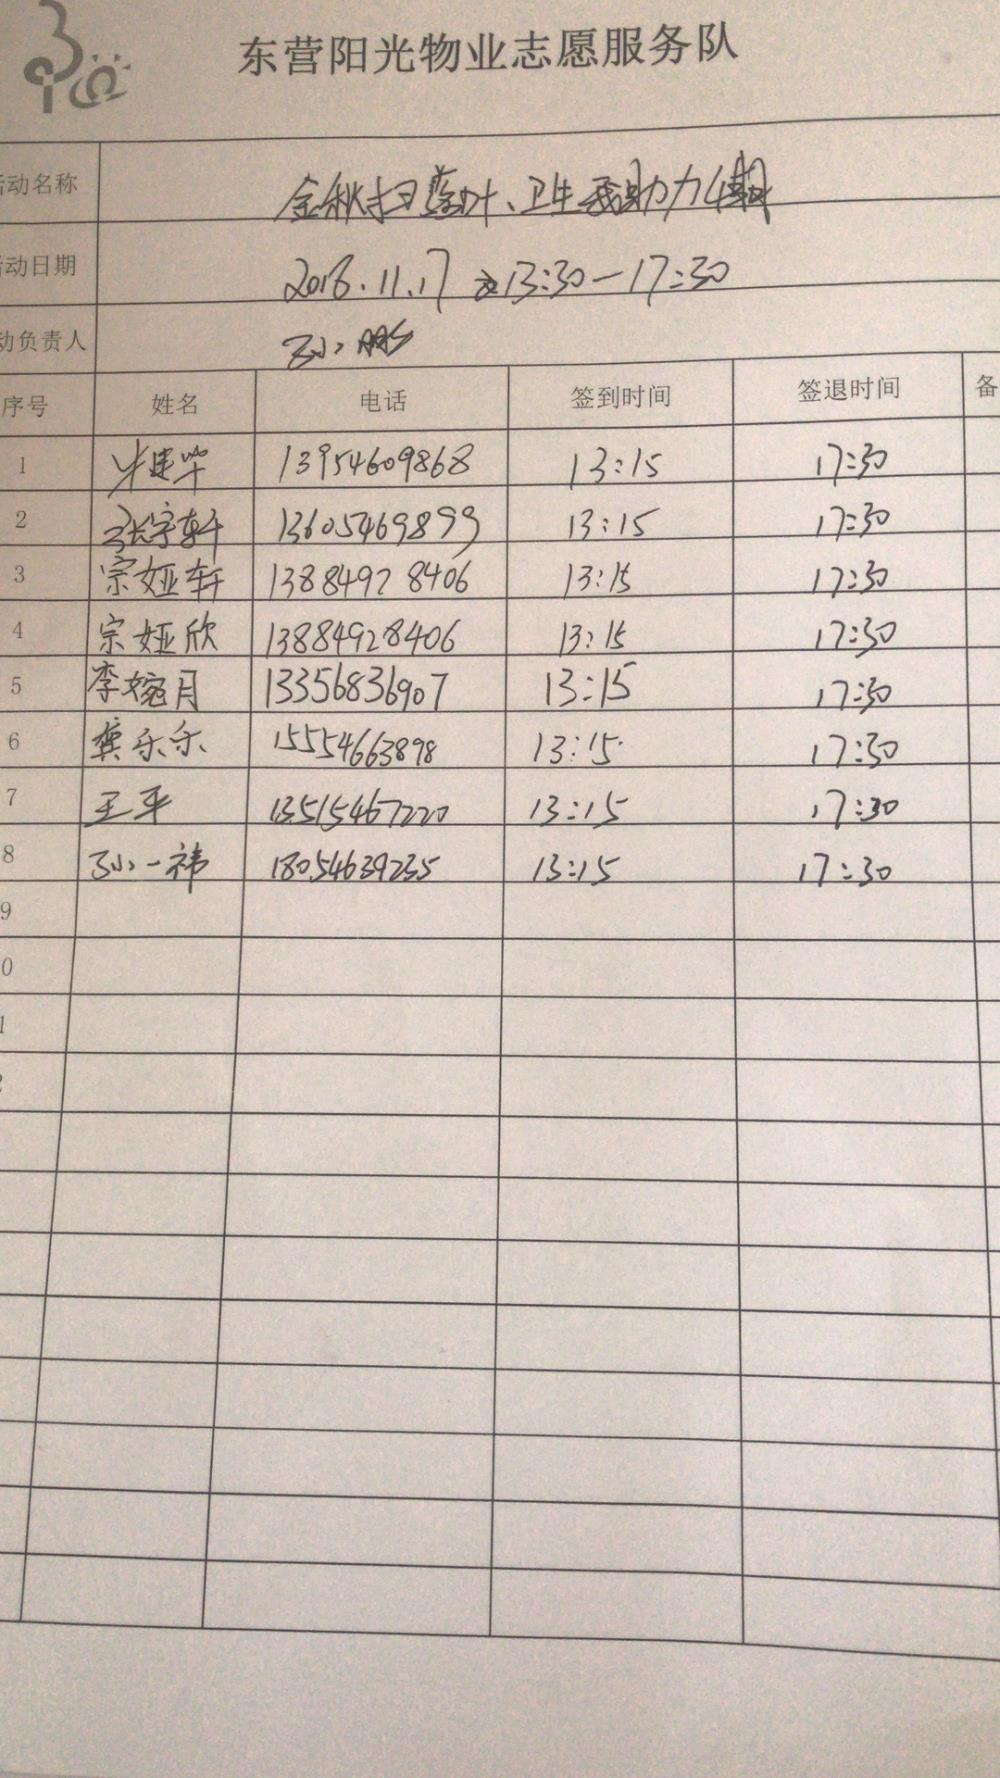 东营阳光物业志愿服务队
活动名称 金秋扫落叶、卫生我助力4期
活动日期 2018.11.17 13:30—17:30
动负责人 孙鹏
序号 姓名 电话 签到时间 签退时间 备
1 牛建华 13954609868 13:15 17:30
2 张宇轩 13605469899 13:15 17:30
3 宗娅轩 13884928406 13:15 17:30
4 宗娅欣 13884928406 13:15 17:30
5 李婉月 13356836907 13:15 17:30
6 龚乐乐 15554663898 13:15 17:30
7 王平 13515467220 13:15 17:30
8 孙一祎 18054639235 13:15 17:30
9
0
1
2